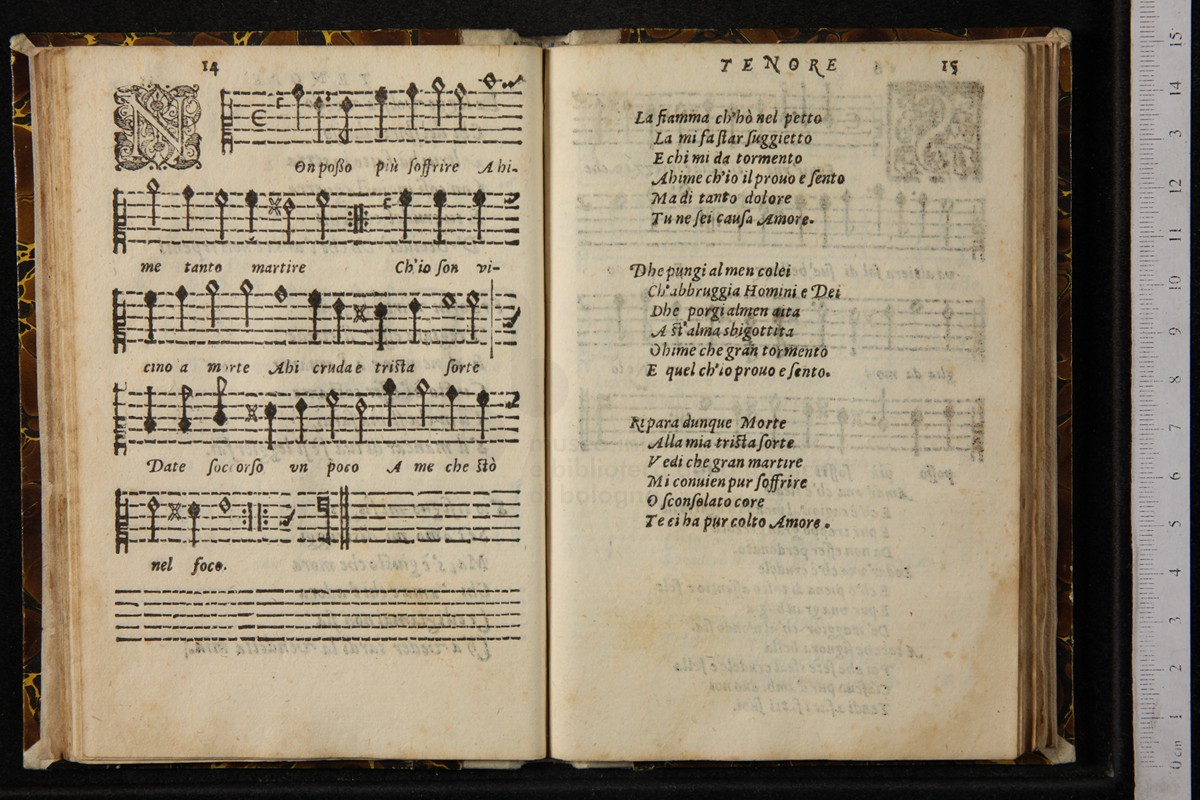 14
Non posso più soffrire Ahi-
me tanto martire Ch'io son vi-
cino a morte Ahi cruda e trista sorte
Date soccorso vn poco A me che stò
nel foco.
TENORE 15
La fiamma ch'hò nel petto
La mi fa star suggietto
E chi mi da tormento
Ahime ch'io il prouo e sento
Ma di tanto dolore
Tu ne sei causa Amore.
Dhe pungi al men colei
Ch'abbruggia Homini e Dei
Dhe porgi almen aita
A st'alma sbigottita
Ohime che gran tormento
E quel ch'io prouo e sento.
Ripara dunque Morte
Alla mia trista sorte
Vedi che gran martire
Mi conuien pur soffrire
O sconsolato core
Te ei ha pur colto Amore.
0 cm 1 2 3 4 5 6 7 8 9 10 11 12 13 14 15